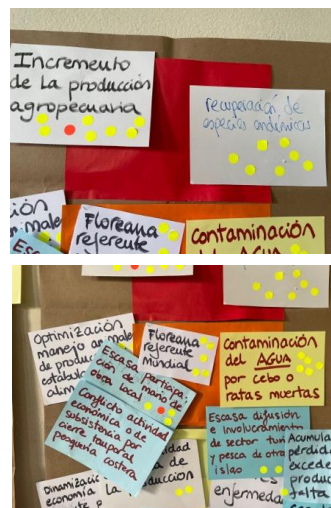 Incremento
de la producción
agropecuaria
recuperación de
especies endémicas
ión
male
Esc
Floreana
referente
contaminación
del AGUA
Optimización
manejo animales
de produc
estabul
alim
Floreana
referente
Mundial
contaminación
del AGUA
por cebo o
ratas muertas
Escasa participa-
ción de mano de
obra local
Conflicto actividad
económica o de
subsistencia por
cierre temporal
pesquería costera
Escasa difusión
e involucramiento
de sector turi
y pesca de otra
islas
Acumula
pérdida
excede
produc
falta
Dinamizac
economía
idad
la de
producción
enfermeda